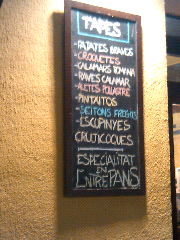 TAPES
-PATATES BRAVES
-CROQUETES
-CALAMARS ROMANA
-RAVES CALAMAR
-ALETES POLLASTRE
-PINTXITOS
-SEITONS FREGITS
-ESCOPINYES
CRUJICOQUES
ESPECIALITAT
EN
ENTREPANS